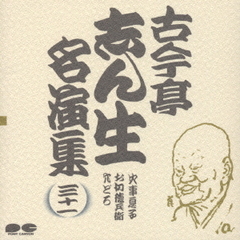 古今亭
志ん生
名演集
三十一
火事息子
お初徳兵衛
穴どろ
PONY CANYON